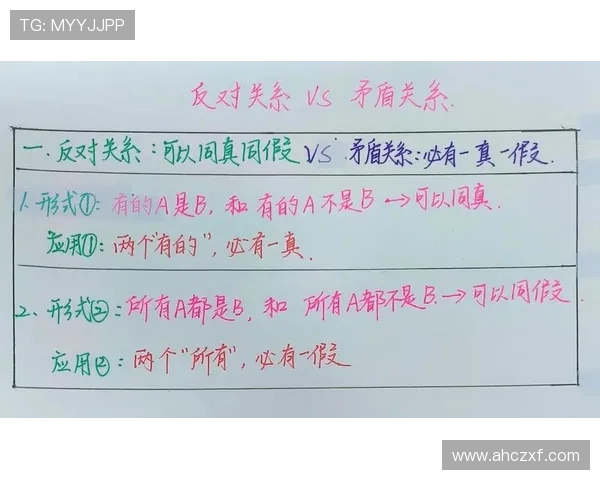 TG: MYYJJPP
反对关系 VS 矛盾关系.
一. 反对关系：可以同真同假 VS 矛盾关系：必有一真一假.
1. 形式①：有的A是B, 和 有的A不是B → 可以同真.
应用①：两个"有的", 必有一真.
2、形式②：所有A都是B, 和 所有A都不是B. → 可以同假.
应用②：两个"所有", 必有一假
www.ahczxf.com